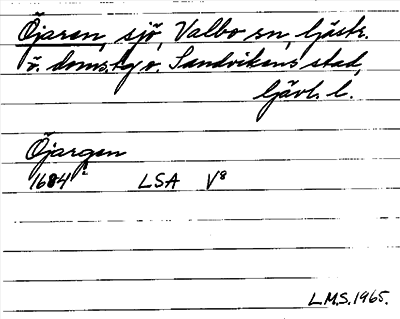 Öjaren, sjö, Valbo sn, Gästr.
ö. doms. tg o. Sandvikens stad,
Gävl. l.
Öjargen
1684 LSA V8
L.M.S. 1965.